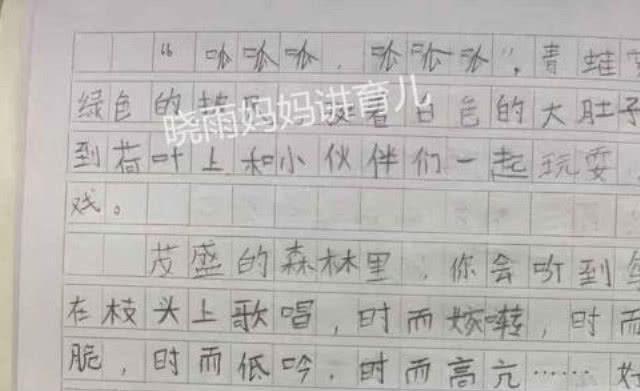 “呱呱呱,呱呱呱”,青蛙
绿色的 着白色的大肚子
到荷叶上和小伙伴们一起玩耍
戏。
茂盛的森林里,你会听到
在枝头上歌唱,时而婉转,时而
脆,时而低吟,时而高亢……好
晓雨妈妈讲育儿